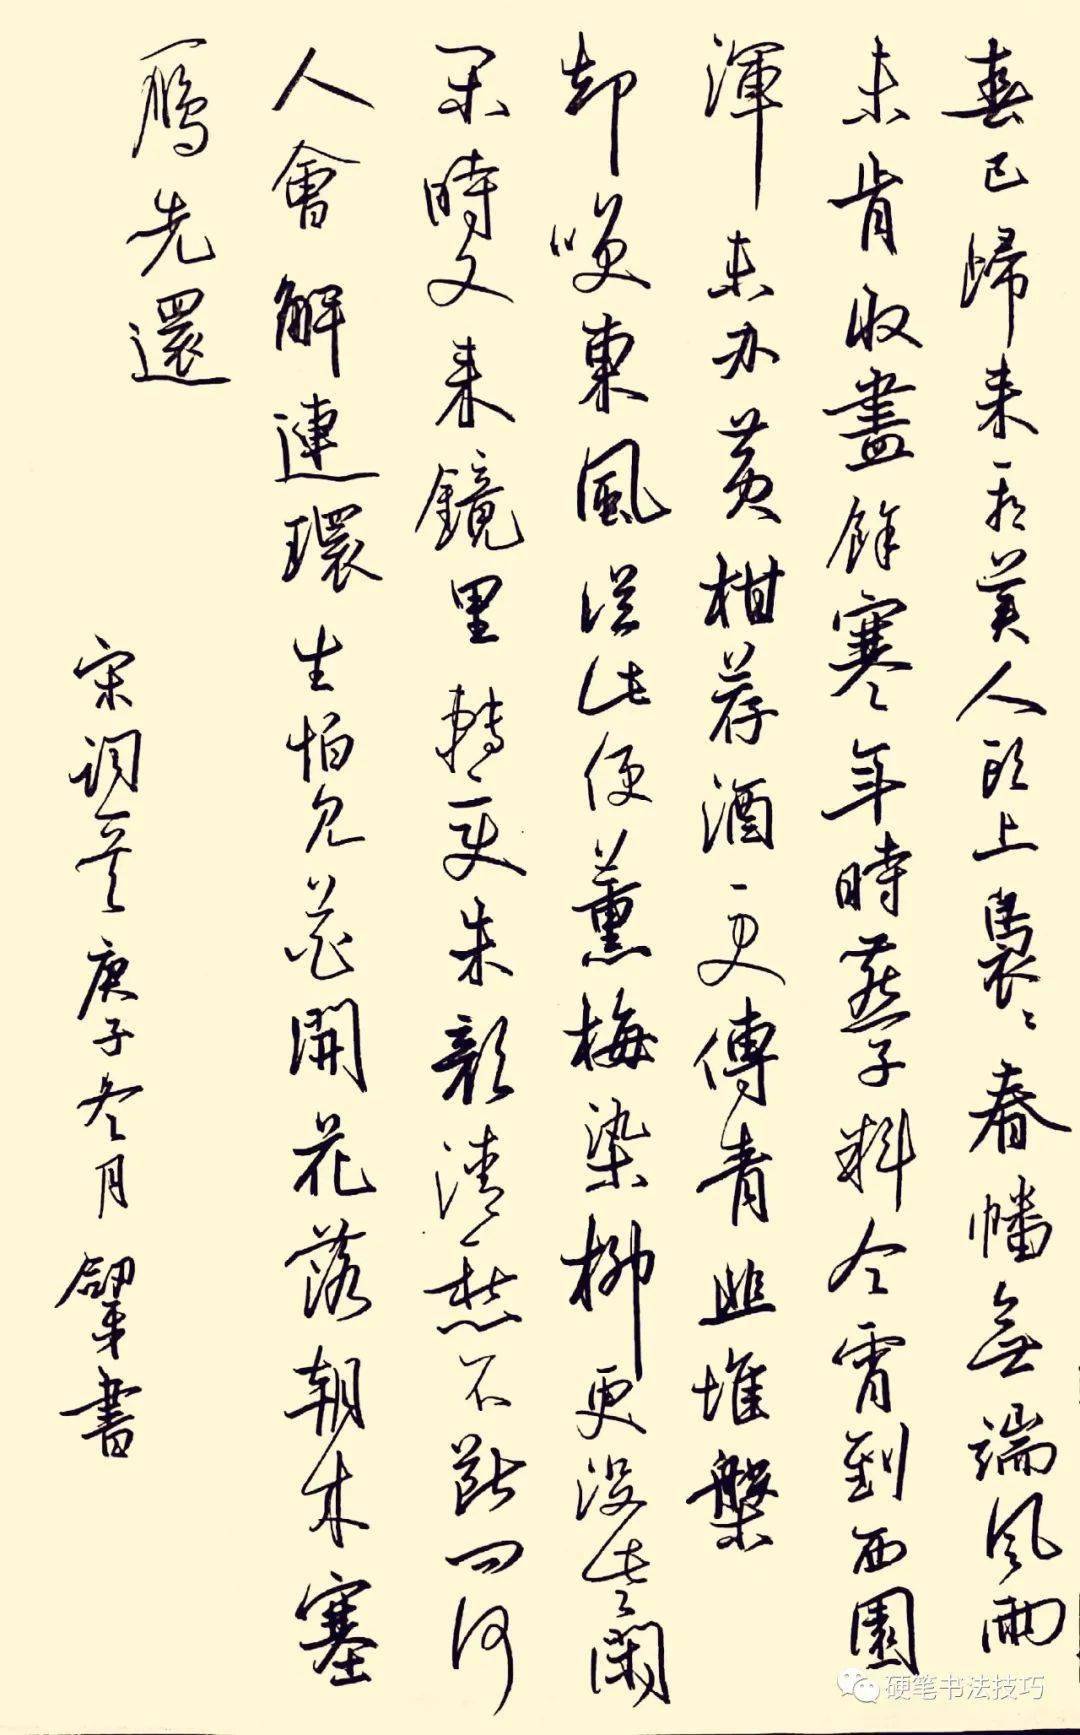 春已歸来看美人头上裊裊春幡無端风雨
未肯收盡餘寒年時燕子料今宵到西園
渾未办黄柑荐酒更傳青韭堆盤
却笑東風從此便薰梅染柳更没些閑
闲時又来鏡里轉变朱颜清愁不断问何
人會解連環生怕见花開花落朝来塞
鴈先還
宋词一首庚子冬月書
硬笔书法技巧